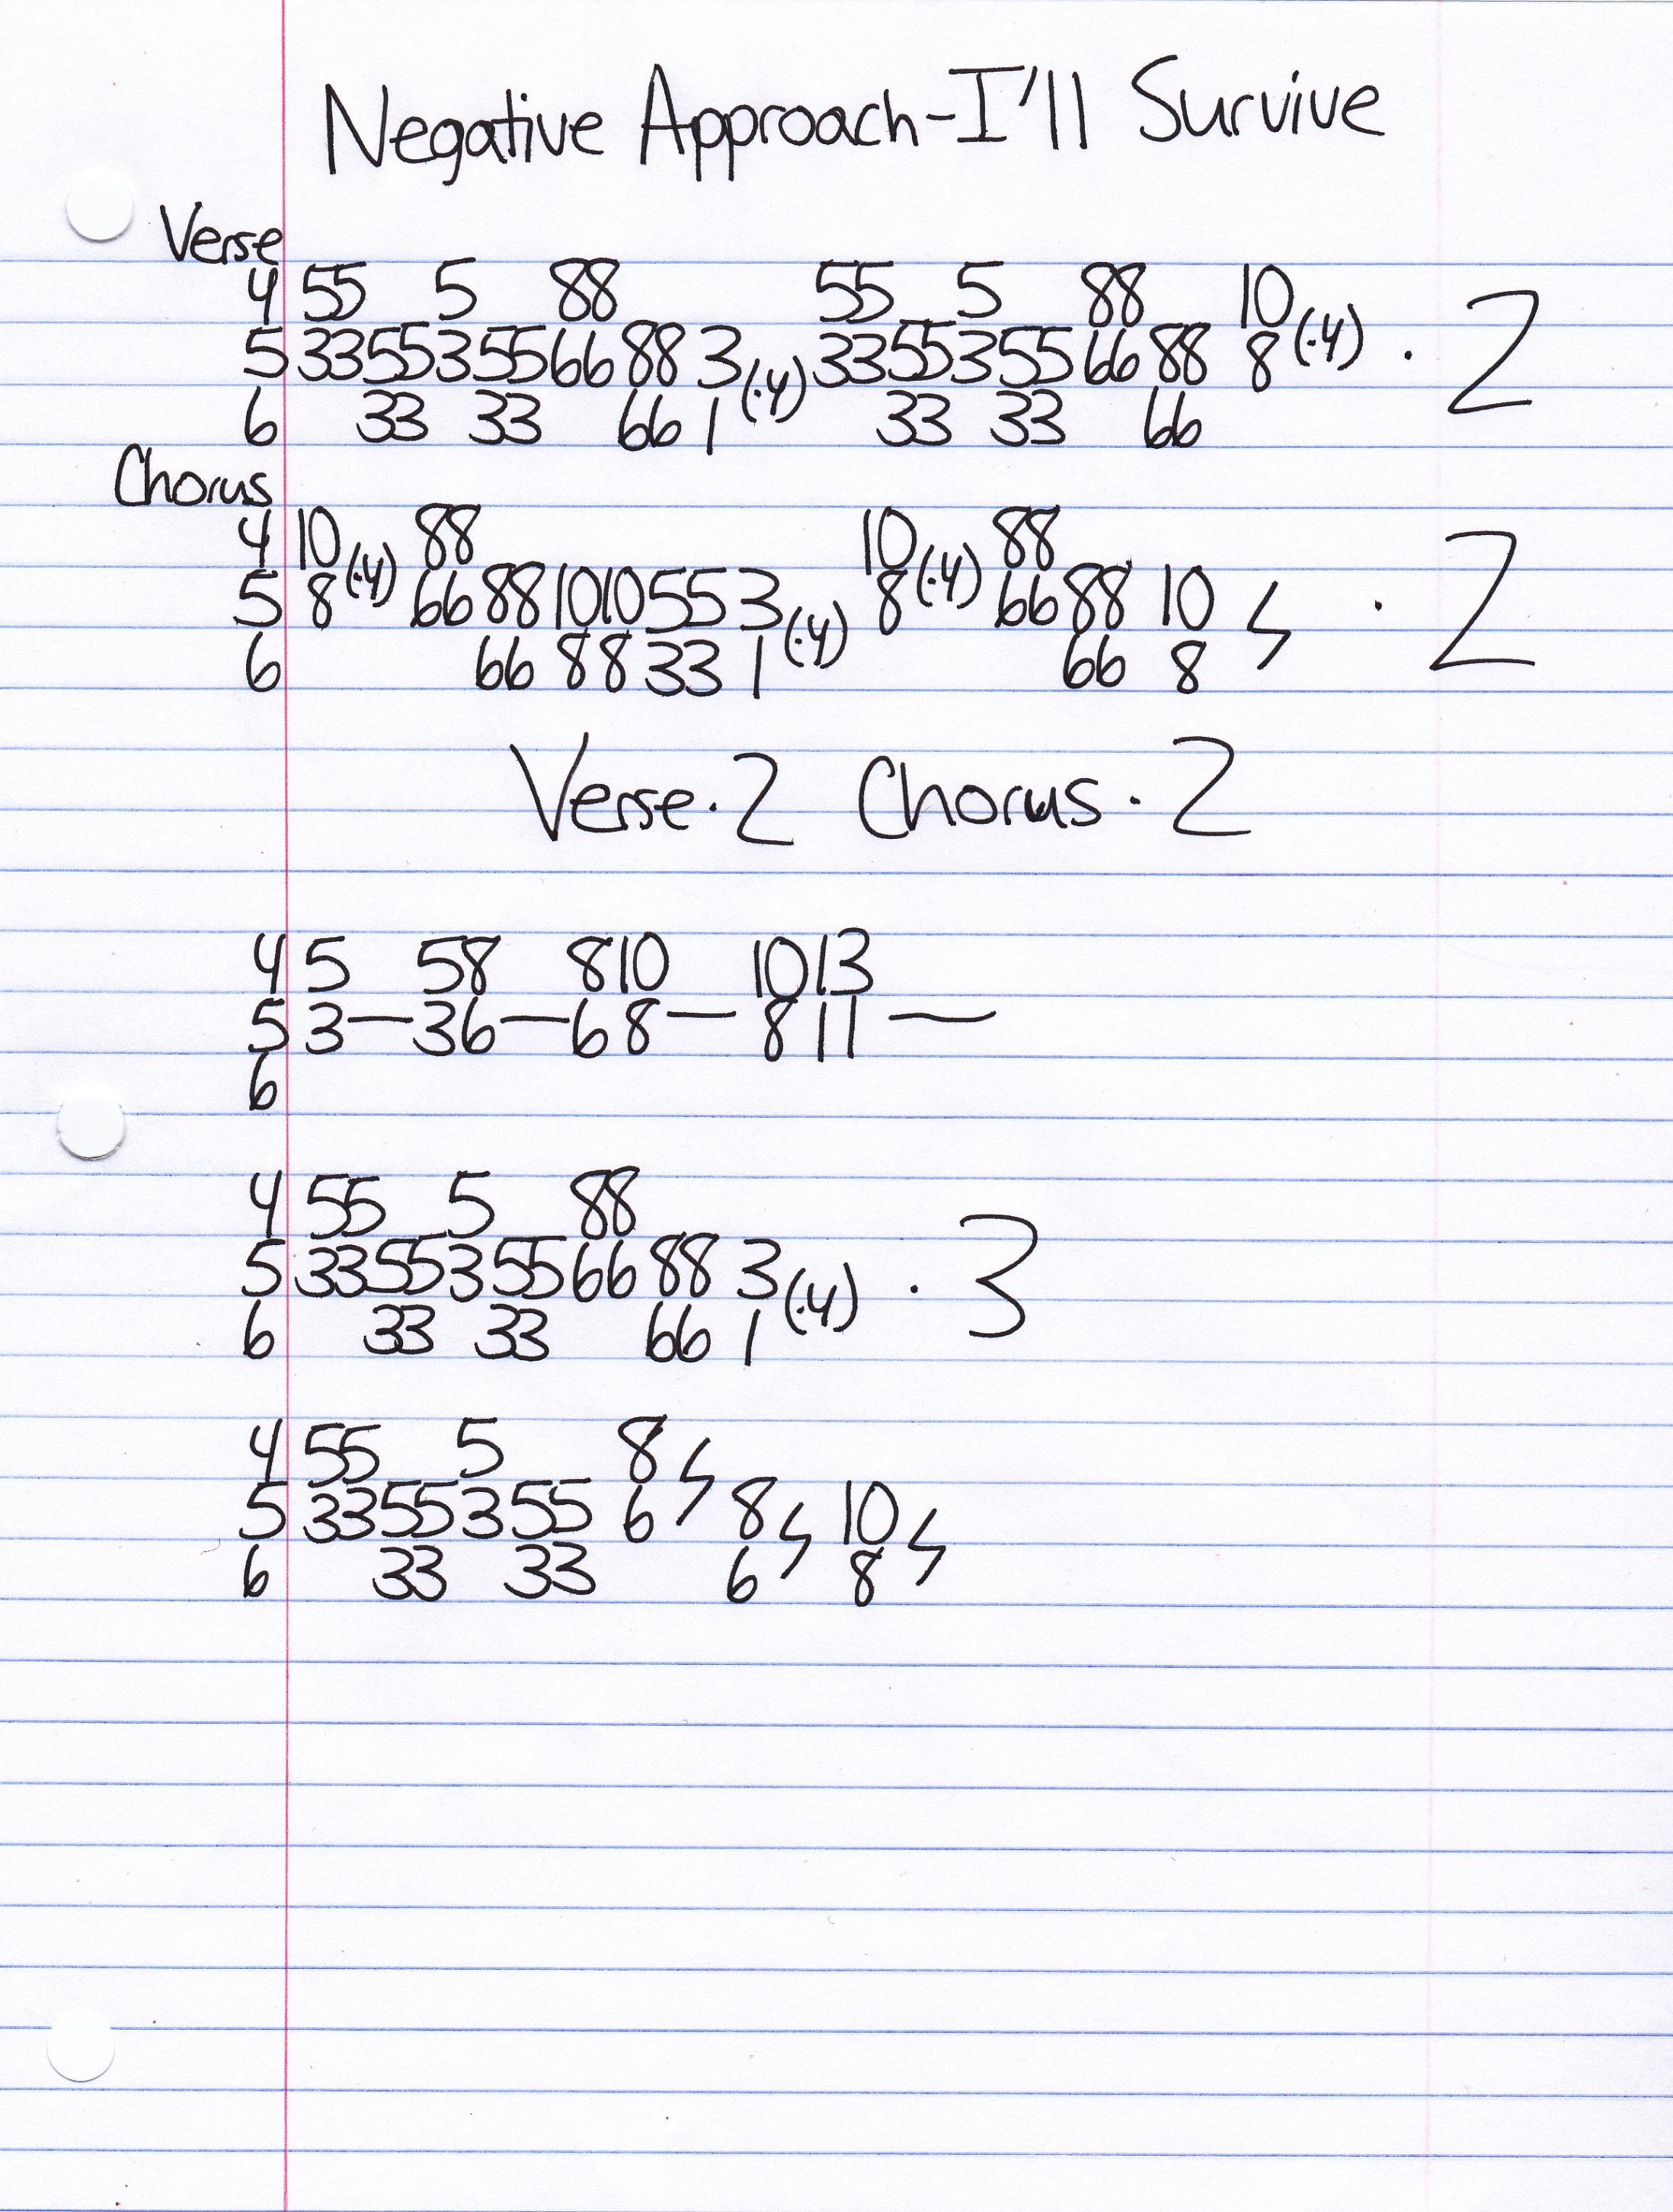 Negative Approach-I'll Survive
Verse
4 55 5 88 55 5 88 10
5 33553556688 3(·4) 33553556688 8(·4) · 2
6 33 33 66 1 33 33 66
Chorus
4 10 88 10 88
5 8(·4) 66 88 1010 55 3(·4) 8(·4) 66 88 10 ϟ · 2
6 66 88 33 1 66 8
Verse·2 Chorus·2
4 5 58 810 1013
5 3—36—68—811—
6
4 55 5 88
5 33553556688 3(·4) · 3
6 33 33 66 1
4 55 5 8 ϟ
5 3355355 6 8 ϟ 10 ϟ
6 33 33 6 8